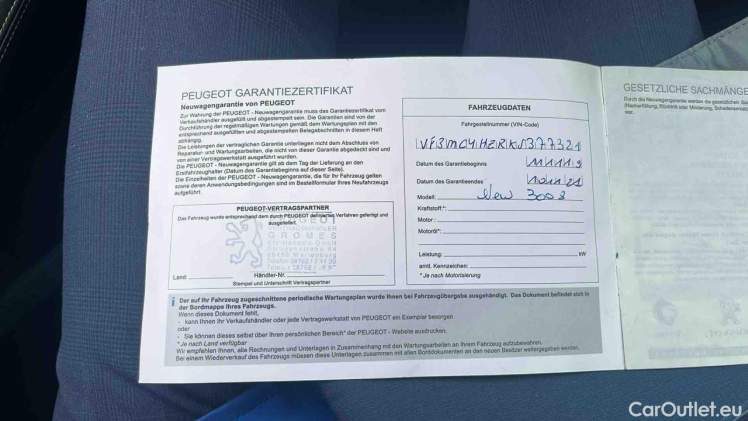 PEUGEOT GARANTIEZERTIFIKAT
Neuwagengarantie von PEUGEOT
Zur Wahrung der PEUGEOT - Neuwagengarantie muss das Garantiezertifikat vom
Verkaufshändler ausgefüllt und abgestempelt sein. Die Garantien sind von der
Durchführung der regelmäßigen Wartungen gemäß dem Wartungsplan mit den
entsprechend ausgefüllten und abgestempelten Belegabschnitten in diesem Heft
abhängig.
Die Leistungen der vertraglichen Garantie unterliegen nicht dem Abschluss von
Reparatur- und Wartungsarbeiten, die nicht von dieser Garantie abgedeckt sind und
von einer Vertragswerkstatt ausgeführt wurden.
Die PEUGEOT - Neuwagengarantie gilt ab dem Tag der Lieferung an den
Ersthalter (Datum des Garantiebeginns auf dieser Seite).
Die Einzelheiten der PEUGEOT - Neuwagengarantie, die für Ihr Fahrzeug gelten
sowie deren Anwendungsbedingungen sind im Bestellformular Ihres Neufahrzeugs
aufgeführt.
PEUGEOT-VERTRAGSPARTNER
Das Fahrzeug wurde entsprechend dem durch PEUGEOT definierten Verfahren gefertigt und
ausgeliefert.
PEUGEOT
GROMES
Land:
Händler-Nr.
Stempel und Unterschrift Vertragspartner
FAHRZEUGDATEN
Fahrgestellnummer (VIN-Code)
Datum des Garantiebeginns
Datum des Garantieendes
Modell: New 3008
Kraftstoff*:
Motor:
Motoröl*:
Leistung: kW
amtl. Kennzeichen:
* Je nach Motorisierung
Der auf Ihr Fahrzeug zugeschnittene periodische Wartungsplan wurde Ihnen bei Fahrzeugübergabe ausgehändigt. Das Dokument befindet sich in
der Bordmappe Ihres Fahrzeugs.
Wenn dieses Dokument fehlt,
- kann Ihnen Ihr Verkaufshändler oder jede Vertragswerkstatt von PEUGEOT ein Exemplar besorgen
oder
- Sie können dieses selbst über Ihren persönlichen Bereich* der PEUGEOT - Website ausdrucken.
* Je nach Land verfügbar
Wir empfehlen Ihnen, alle Rechnungen und Unterlagen in Zusammenhang mit den Wartungsarbeiten an Ihrem Fahrzeug aufzubewahren.
Bei einem Wiederverkauf des Fahrzeugs müssen diese Unterlagen zusammen mit allen Borddokumenten an den neuen Besitzer weitergegeben werden.
GESETZLICHE SACHMÄNGE
Durch die Neuwagengarantie werden die gesetzlichen
CarOutlet.eu